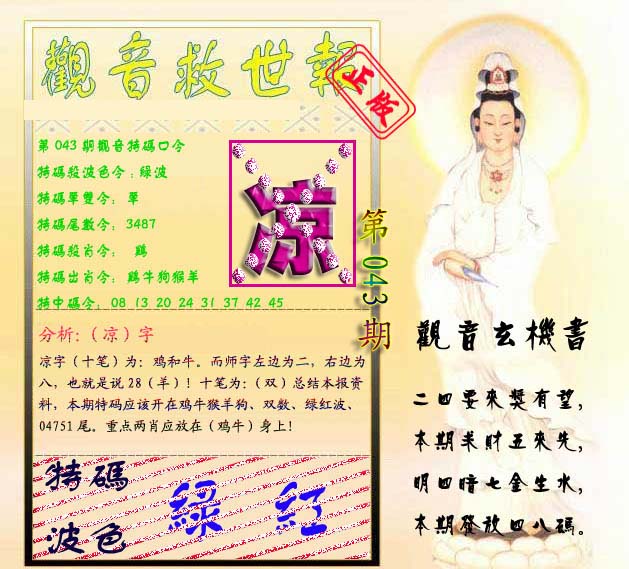 觀音救世報
正版
第 043 期觀音特碼口令
特碼殺波色令:綠波
特碼單雙令: 單
特碼尾數令: 3487
特碼殺肖令: 鷄
特碼出肖令: 鷄牛狗猴羊
特中碼令: 08 13 20 24 31 37 42 45
凉
第043期
分析:（凉）字
凉字（十笔）为：鸡和牛。而师字左边为二，右边为
八，也就是说 28（羊）！十笔为：（双）总结本报资
料，本期特码应该开在鸡牛猴羊狗、双数、绿红波、
04751 尾。重点两肖应放在（鸡牛）身上！
特碼
波色
綠 紅
觀音玄機書
二四要來獎有望，
本期羊財五來先，
明四暗七金生水，
本期發放四八碼。